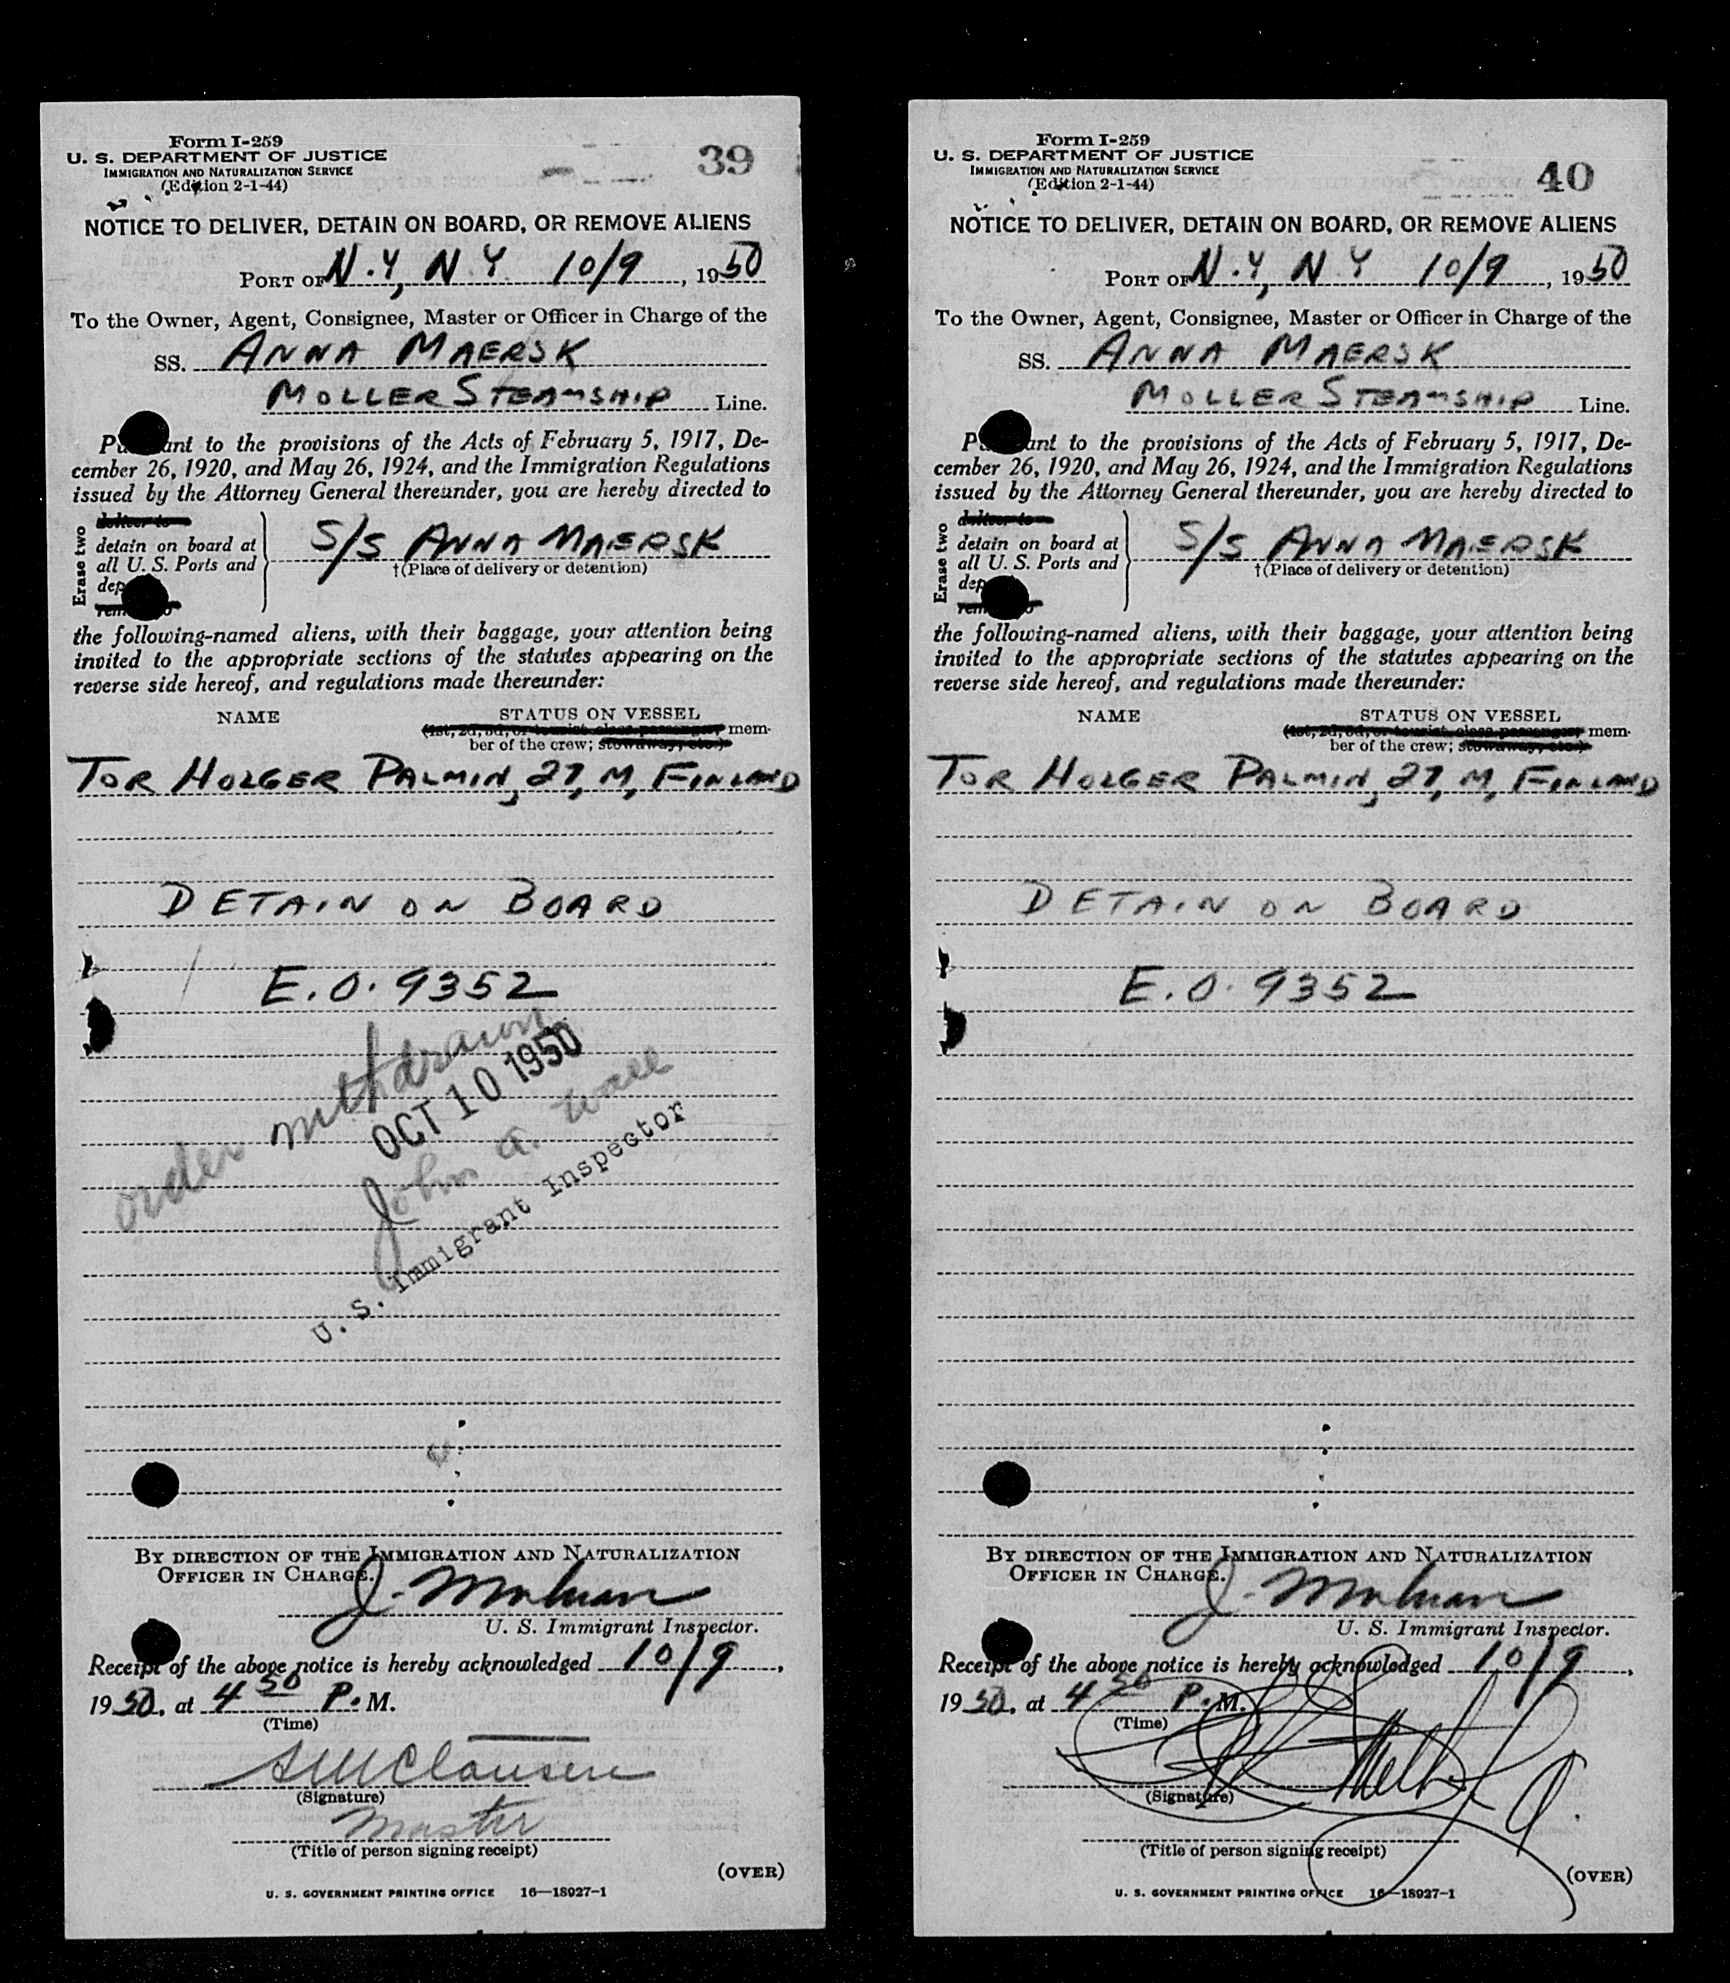 Form I-259
U. S. DEPARTMENT OF JUSTICE
IMMIGRATION AND NATURALIZATION SERVICE
(Edition 2-1-44)
39
NOTICE TO DELIVER, DETAIN ON BOARD, OR REMOVE ALIENS
PORT OF N.Y, N.Y 10/9, 1950
To the Owner, Agent, Consignee, Master or Officer in Charge of the
SS. ANNA MAERSK
MOLLER STEAMSHIP Line.
Pursuant to the provisions of the Acts of February 5, 1917, De-
cember 26, 1920, and May 26, 1924, and the Immigration Regulations
issued by the Attorney General thereunder, you are hereby directed to
Erase two
deliver to
detain on board at
all U. S. Ports and
dep
S/S ANNA MAERSK
†(Place of delivery or detention)
the following-named aliens, with their baggage, your attention being
invited to the appropriate sections of the statutes appearing on the
reverse side hereof, and regulations made thereunder:
NAME STATUS ON VESSEL
(1st, 2d, 3d, or tourist class passenger, mem-
ber of the crew; stowaway, etc.)
TOR HOLGER PALMIN, 27, M, FINLAND
DETAIN ON BOARD
E.O. 9352
order withdrawn
OCT 10 1950
John A.
U. S. Immigrant Inspector
BY DIRECTION OF THE IMMIGRATION AND NATURALIZATION
OFFICER IN CHARGE.
J.
U. S. Immigrant Inspector.
Receipt of the above notice is hereby acknowledged 10/9,
1950, at 4 50 P. M.
(Time)
Clausen
(Signature)
Master
(Title of person signing receipt)
(OVER)
U. S. GOVERNMENT PRINTING OFFICE 16—18927-1
Form I-259
U. S. DEPARTMENT OF JUSTICE
IMMIGRATION AND NATURALIZATION SERVICE
(Edition 2-1-44)
40
NOTICE TO DELIVER, DETAIN ON BOARD, OR REMOVE ALIENS
PORT OF N.Y, N.Y 10/9, 1950
To the Owner, Agent, Consignee, Master or Officer in Charge of the
SS. ANNA MAERSK
MOLLER STEAMSHIP Line.
Pursuant to the provisions of the Acts of February 5, 1917, De-
cember 26, 1920, and May 26, 1924, and the Immigration Regulations
issued by the Attorney General thereunder, you are hereby directed to
Erase two
deliver to
detain on board at
all U. S. Ports and
dep
S/S ANNA MAERSK
†(Place of delivery or detention)
the following-named aliens, with their baggage, your attention being
invited to the appropriate sections of the statutes appearing on the
reverse side hereof, and regulations made thereunder:
NAME STATUS ON VESSEL
(1st, 2d, 3d, or tourist class passenger, mem-
ber of the crew; stowaway, etc.)
TOR HOLGER PALMIN, 27, M, FINLAND
DETAIN ON BOARD
E.O. 9352
BY DIRECTION OF THE IMMIGRATION AND NATURALIZATION
OFFICER IN CHARGE.
J.
U. S. Immigrant Inspector.
Receipt of the above notice is hereby acknowledged 10/9,
1950, at 4 50 P. M.
(Time)
(Signature)
(Title of person signing receipt)
(OVER)
U. S. GOVERNMENT PRINTING OFFICE 16—18927-1